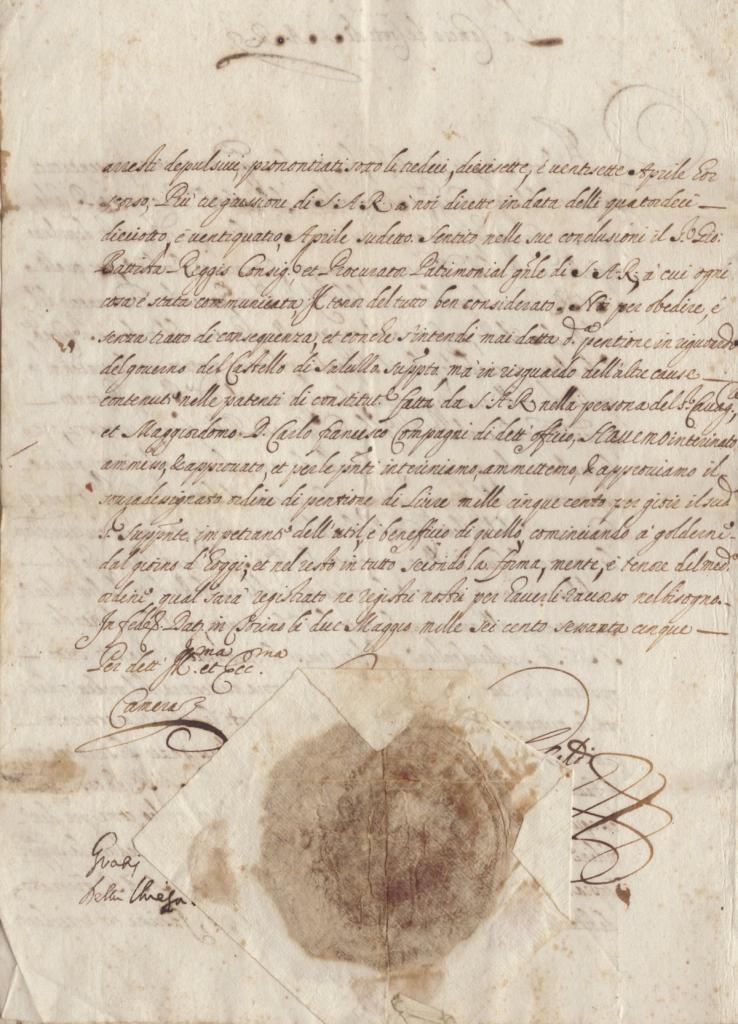 arresti depulsivi, pronontiati sotto li tredeci, diecisette, è ventisette Aprile hor
scorso, Più tre giussione di S.A.R. à noi dirette in data delli quatordeci
dieciotto, è ventiquatro Aprile sudetto. Sentito nelle sue conclusioni il S.r Gio:
Battista Reggis Consig.re et Procurator Patrimonial gn̄le di S.A.R, à cui ogni
cosa è stata communicata Il tenor del tutto ben considerato. Noi per obedire, é
senza tratto di consequenza, et con che s'intendi mai datta d.a pentione in riguardo
del governo del Castello di Saluzzo supp.to ma in risguardo dell'altre cause
contenute nelle patenti di constitut.e fatta da S.A.R nella persona del S.r Cavag.re
et Maggiordomo D. Carlo Francesco Compagni di dett' officio, Havemo interinato
ammesso, & approvato, et per le pn̄ti interiniamo, ammettemo, & approviamo il
sovradesignato ordine di pentione di Livre mille cinque cento per gioir il sud.o
S.r Supp.nte impetrante dell'util, è beneffico di quello, cominciando à golderne
dal giorno d'hoggi, et nel resto in tutto secondo la forma, mente, è tenore del med.o
ordine, qual sarà registrato ne registri nostri per haverli raccorso nel bisogno.
In fede Dat. in Torino li due Maggio mille sei cento settanta cinque
Per dett' Ill.ma et Ecc.ma
Camera